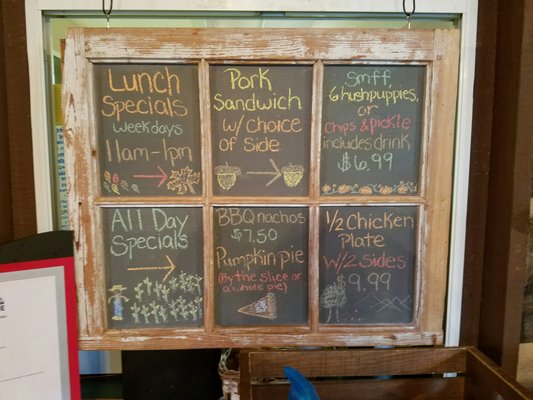 Lunch
Specials
weekdays
11am-1pm
Pork
Sandwich
w/ Choice
of Side
Smff,
6 hushpuppies,
or
chips & pickle
includes drink
$6.99
All Day
Specials
BBQ nachos
$7.50
Pumpkin pie
(By the slice or
a whole pie)
1/2 Chicken
Plate
w/ 2 sides
$9.99